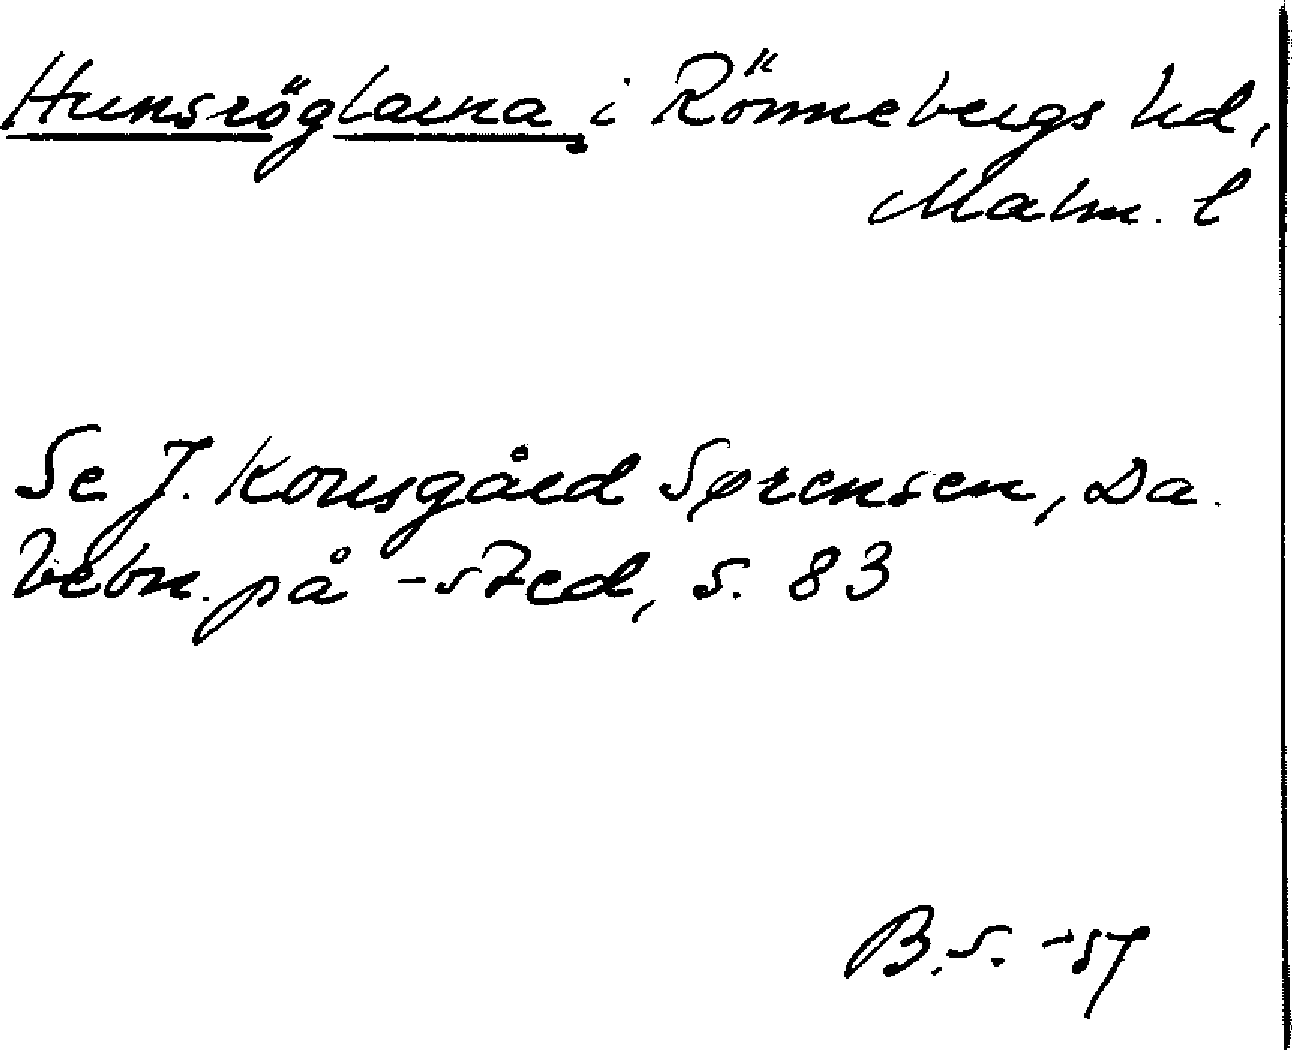 Hunsröglarna i Rönnebergs hd,
Malm. l
Se J. Kousgård Sørensen, Da.
bebn. på -sted, s. 83
B.S. -57